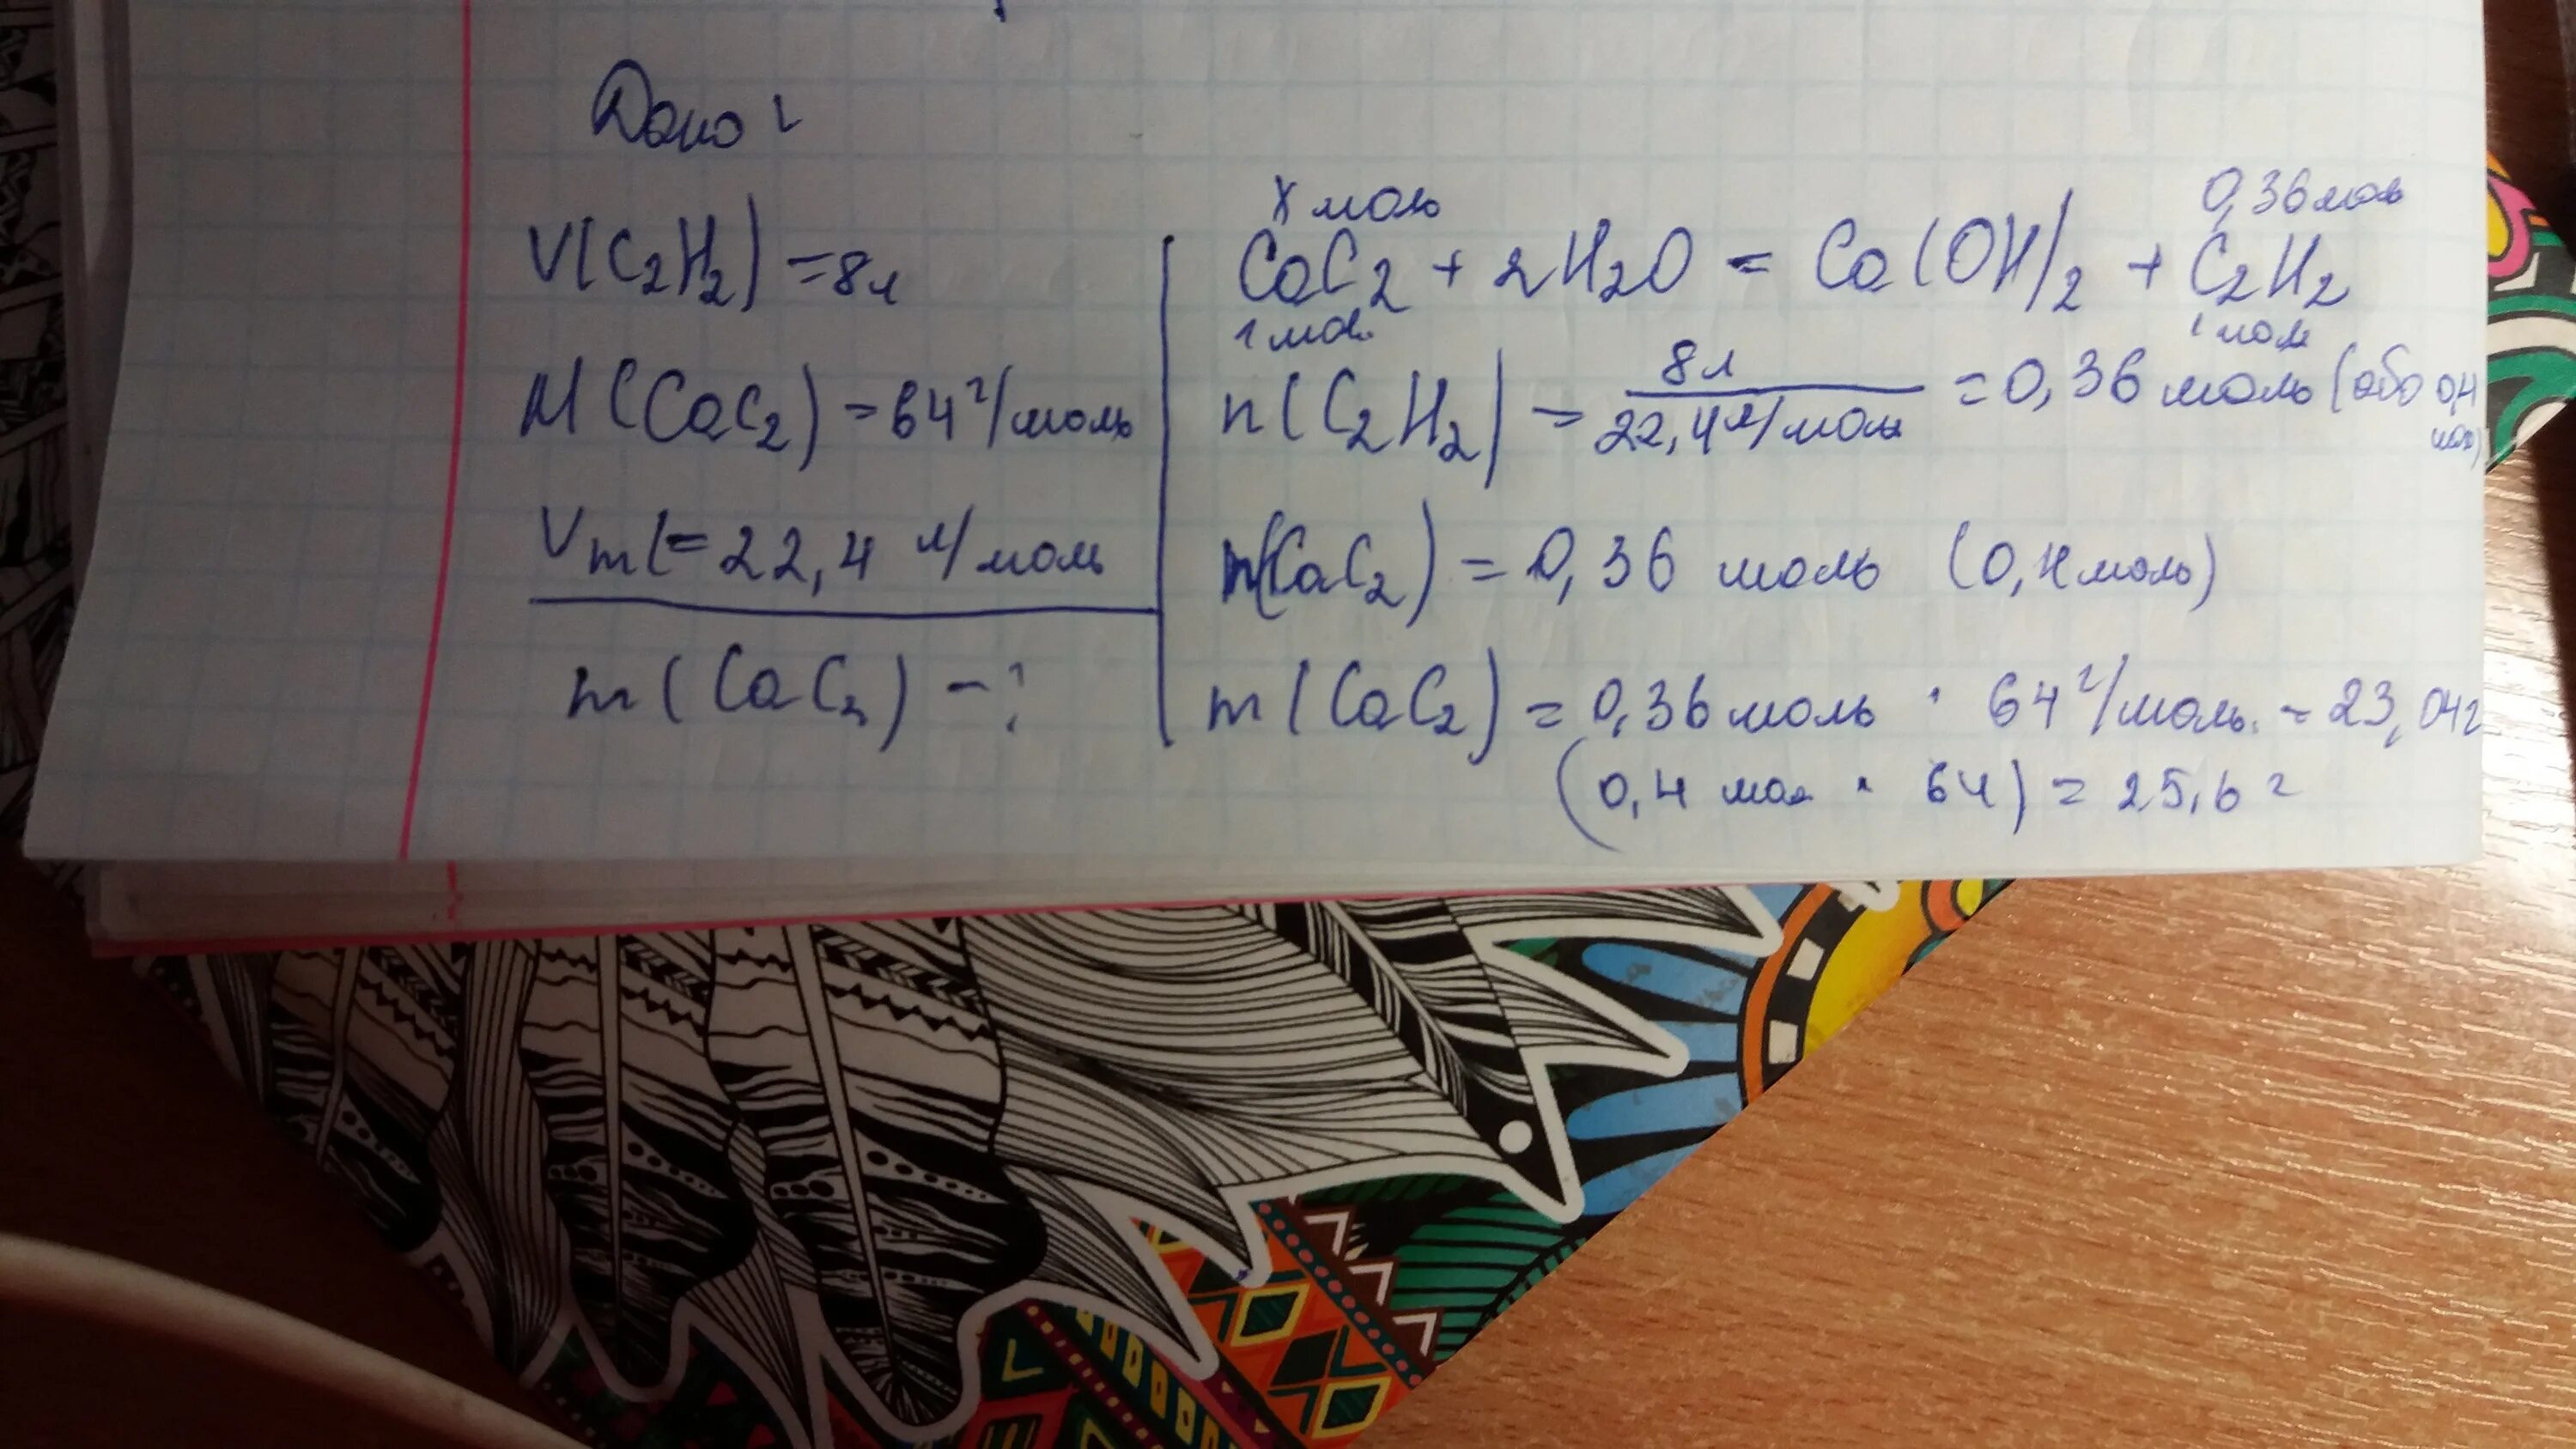 Дано:
V(C2H2) = 8л
M(CaC2) = 64 г/моль
Vm = 22,4 л/моль
m(CaC2) - ?
x моль 0,36 моль
CaC2 + 2H2O = Ca(OH)2 + C2H2
1 мол. 1 моль
n(C2H2) = 8л / 22,4 л/моль = 0,36 моль (або 0,4 мол)
n(CaC2) = 0,36 моль (0,4 моль)
m(CaC2) = 0,36 моль · 64 г/моль = 23,04г
(0,4 мол · 64) = 25,6 г